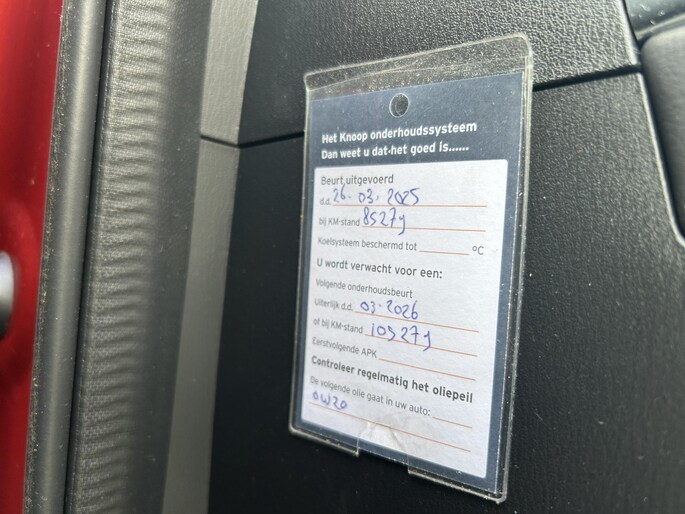 Het Knoop onderhoudssysteem
Dan weet u dat het goed is......
Beurt uitgevoerd
d.d. 26-03-2025
bij KM-stand 85279
Koelsysteem beschermd tot °C
U wordt verwacht voor een:
Volgende onderhoudsbeurt
Uiterlijk d.d. 03-2026
of bij KM-stand 105279
Eerstvolgende APK
Controleer regelmatig het oliepeil
De volgende olie gaat in uw auto:
0W20